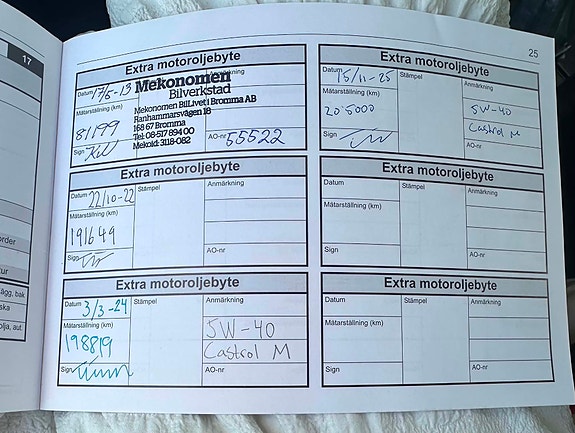 17
25
Extra motoroljebyte
Datum 17/5-13
Mätarställning (km)
81199
Sign
Anmärkning
AO-nr 55522
Mekonomen
Bilverkstad
Mekonomen BilLivet i Bromma AB
Ranhammarsvägen 18
168 67 Bromma
Tel: 08-517 894 00
Mekoid: 3118-082
Extra motoroljebyte
Datum 22/10-22
Stämpel
Anmärkning
Mätarställning (km)
191649
Sign
AO-nr
Extra motoroljebyte
Datum 3/3-24
Stämpel
Anmärkning
Mätarställning (km)
198819
5W-40
Castrol M
Sign
AO-nr
Extra motoroljebyte
Datum 15/11-25
Stämpel
Anmärkning
Mätarställning (km)
20'5000
5W-40
Castrol M
Sign
AO-nr
Extra motoroljebyte
Datum
Stämpel
Anmärkning
Mätarställning (km)
Sign
AO-nr
Extra motoroljebyte
Datum
Stämpel
Anmärkning
Mätarställning (km)
Sign
AO-nr